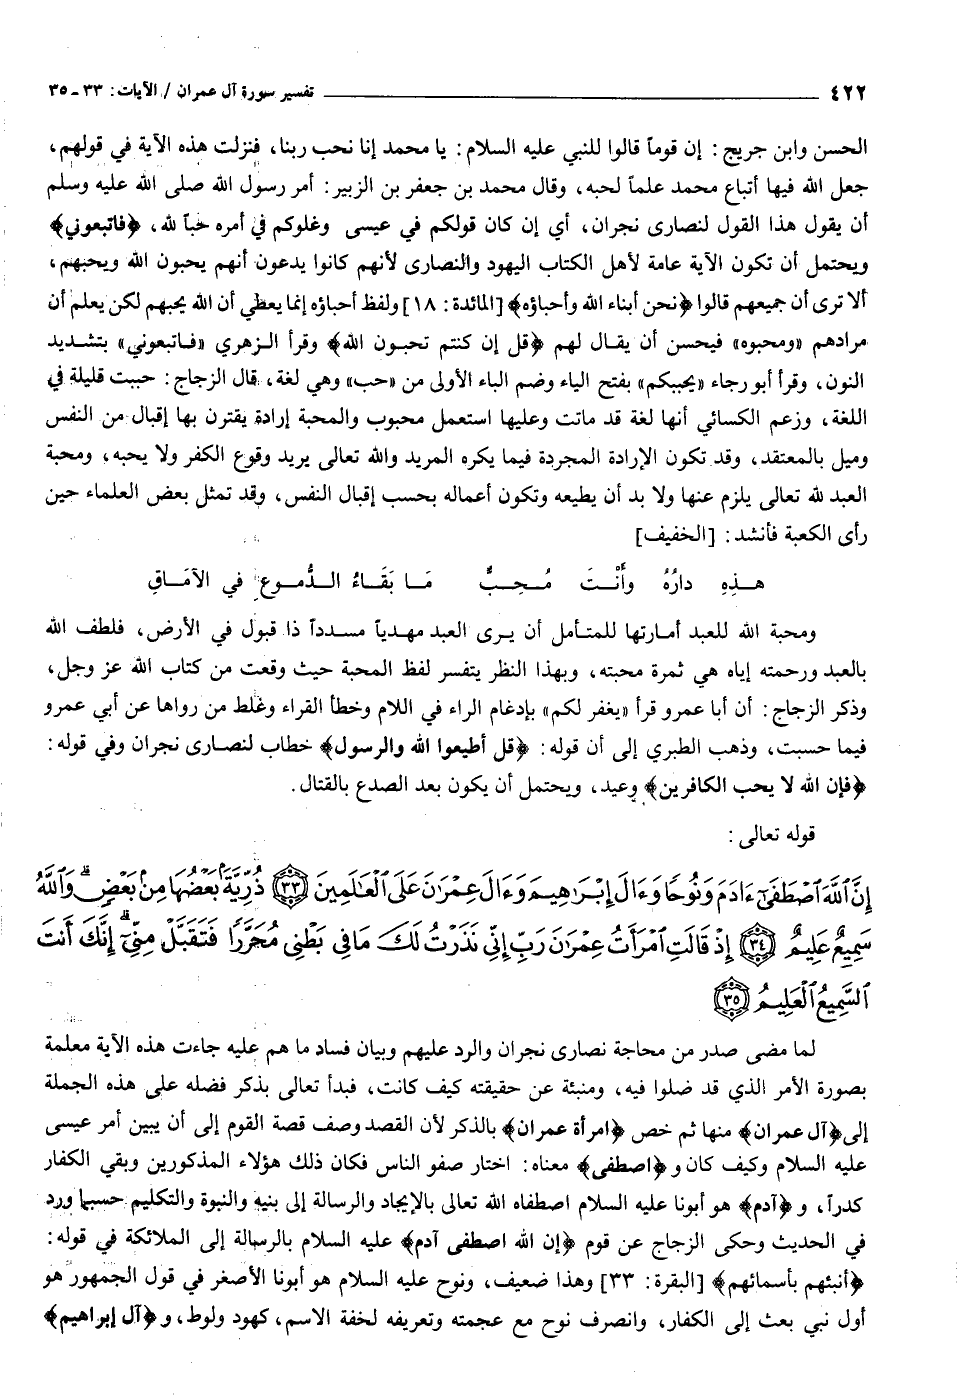 ٤٢٢ ــــــــــــــــــــ تفسير سورة آل عمران / الآيات: ٣٣ ـ ٣٥
الحسن وابن جريج: إن قوماً قالوا للنبي عليه السلام: يا محمد إنا نحب ربنا، فنزلت هذه الآية في قولهم،
جعل الله فيها أتباع محمد علماً لحبه، وقال محمد بن جعفر بن الزبير: أمر رسول الله صلى الله عليه وسلم
أن يقول هذا القول لنصارى نجران، أي إن كان قولكم في عيسى وغلوكم في أمره حباً لله، ﴿فاتبعوني﴾
ويحتمل أن تكون الآية عامة لأهل الكتاب اليهود والنصارى لأنهم كانوا يدعون أنهم يحبون الله ويحبهم،
ألا ترى أن جميعهم قالوا ﴿نحن أبناء الله وأحباؤه﴾ [المائدة: ١٨] ولفظ أحباؤه إنما يعطي أن الله يحبهم لكن يعلم أن
مرادهم «ومحبوه» فيحسن أن يقال لهم ﴿قل إن كنتم تحبون الله﴾ وقرأ الزهري «فاتبعوني» بتشديد
النون، وقرأ أبو رجاء «يحببكم» بفتح الياء وضم الباء الأولى من «حب» وهي لغة، قال الزجاج: حببت قليلة في
اللغة، وزعم الكسائي أنها لغة قد ماتت وعليها استعمل محبوب والمحبة إرادة يقترن بها إقبال من النفس
وميل بالمعتقد، وقد تكون الإرادة المجردة فيما يكره المريد والله تعالى يريد وقوع الكفر ولا يحبه، ومحبة
العبد لله تعالى يلزم عنها ولا بد أن يطيعه وتكون أعماله بحسب إقبال النفس، وقد تمثل بعض العلماء حين
رأى الكعبة فأنشد: [الخفيف]
هـذِهِ دارُهُ وأَنْتَ مُحِبٌّ مَا بَقَاءُ الدُّموعِ في الآمَاقِ
ومحبة الله للعبد أمارتها للمتأمل أن يرى العبد مهدياً مسدداً ذا قبول في الأرض، فلطف الله
بالعبد ورحمته إياه هي ثمرة محبته، وبهذا النظر يتفسر لفظ المحبة حيث وقعت من كتاب الله عز وجل،
وذكر الزجاج: أن أبا عمرو قرأ «يغفر لكم» بإدغام الراء في اللام وخطأ القراء وغلط من رواها عن أبي عمرو
فيما حسبت، وذهب الطبري إلى أن قوله: ﴿قل أطيعوا الله والرسول﴾ خطاب لنصارى نجران وفي قوله:
﴿فإن الله لا يحب الكافرين﴾ وعيد، ويحتمل أن يكون بعد الصدع بالقتال.
قوله تعالى:
إِنَّ ٱللَّهَ ٱصْطَفَىٰٓ ءَادَمَ وَنُوحًا وَءَالَ إِبْرَاهِيمَ وَءَالَ عِمْرَانَ عَلَى ٱلْعَالَمِينَ ﴿٣٣﴾ ذُرِّيَّةًۢ بَعْضُهَا مِنۢ بَعْضٍۗ وَٱللَّهُ
سَمِيعٌ عَلِيمٌ ﴿٣٤﴾ إِذْ قَالَتِ ٱمْرَأَتُ عِمْرَانَ رَبِّ إِنِّي نَذَرْتُ لَكَ مَا فِي بَطْنِي مُحَرَّرًا فَتَقَبَّلْ مِنِّيٓۖ إِنَّكَ أَنتَ
ٱلسَّمِيعُ ٱلْعَلِيمُ ﴿٣٥﴾
لما مضى صدر من محاجة نصارى نجران والرد عليهم وبيان فساد ما هم عليه جاءت هذه الآية معلمة
بصورة الأمر الذي قد ضلوا فيه، ومنبئة عن حقيقته كيف كانت، فبدأ تعالى بذكر فضله على هذه الجملة
إلى ﴿آل عمران﴾ منها ثم خص ﴿امرأة عمران﴾ بالذكر لأن القصد وصف قصة القوم إلى أن يبين أمر عيسى
عليه السلام وكيف كان و ﴿اصطفى﴾ معناه: اختار صفو الناس فكان ذلك هؤلاء المذكورين وبقي الكفار
كدراً، و ﴿آدم﴾ هو أبونا عليه السلام اصطفاه الله تعالى بالإيجاد والرسالة إلى بنيه والنبوة والتكليم حسبما ورد
في الحديث وحكى الزجاج عن قوم ﴿إن الله اصطفى آدم﴾ عليه السلام بالرسالة إلى الملائكة في قوله:
﴿أنبئهم بأسمائهم﴾ [البقرة: ٣٣] وهذا ضعيف، ونوح عليه السلام هو أبونا الأصغر في قول الجمهور هو
أول نبي بعث إلى الكفار، وانصرف نوح مع عجمته وتعريفه لخفة الاسم، كهود ولوط، و ﴿آل إبراهيم﴾